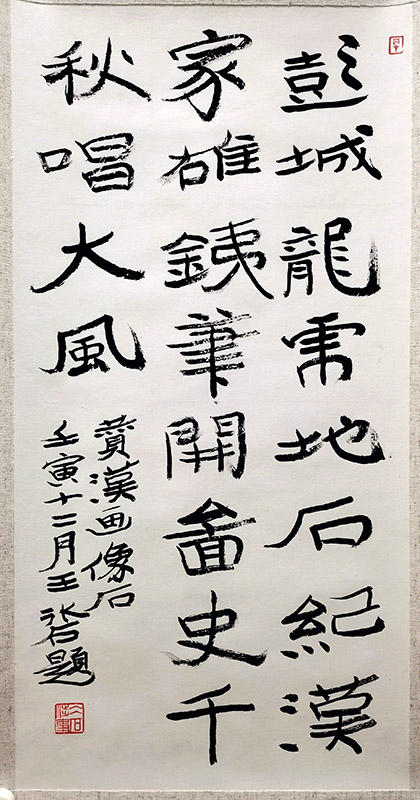 彭城龍虎地石紀漢
家雄銕筆開啚史千
秋唱大風
贊漢画像石
壬寅十二月王冰石題